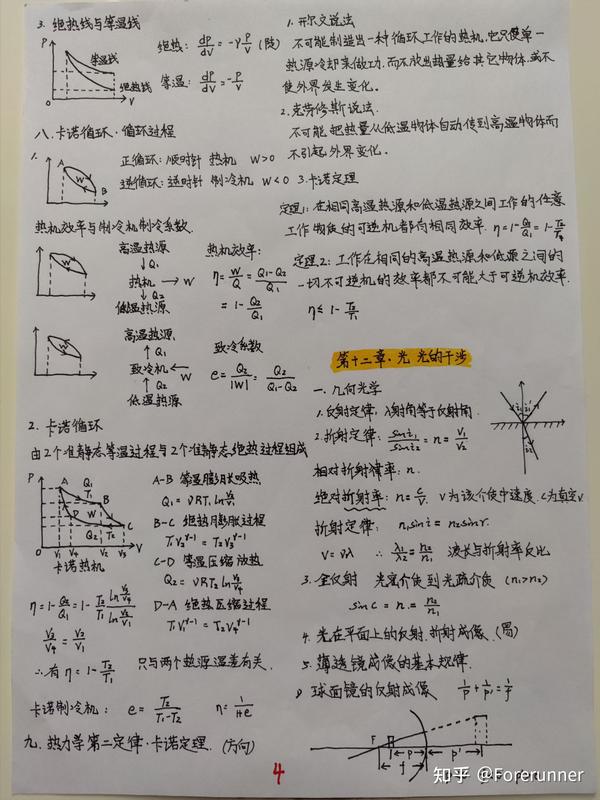 3. 绝热线与等温线
P
等温线
绝热线
O
V
绝热: dP/dV = -γ P/V (陡)
等温: dP/dV = -P/V
八. 卡诺循环·循环过程
1.
A
W
B
正循环: 顺时针 热机 W>0
逆循环: 逆时针 制冷机 W<0
热机效率与制冷机制冷系数.
W
高温热源
↓Q1
热机 → W
↓Q2
低温热源
热机效率:
η = W/Q = (Q1-Q2)/Q1
= 1 - Q2/Q1
高温热源
↑Q1
致冷机 ← W
↑Q2
低温热源
致冷系数
e = Q2/|W| = Q2/(Q1-Q2)
2. 卡诺循环
由2个准静态等温过程与2个准静态绝热过程组成
P
A
Q1
T1
B
D
W
C
Q2
T2
V1 V4 V2 V3 V
卡诺热机
A-B 等温膨胀吸热
Q1 = νRT1 ln V2/V1
B-C 绝热膨胀过程
T1V2^γ-1 = T2V3^γ-1
C-D 等温压缩放热
Q2 = νRT2 ln V3/V4
D-A 绝热压缩过程
T1V1^γ-1 = T2V4^γ-1
η = 1 - Q2/Q1 = 1 - T2/T1 ln V3/V4 / ln V2/V1
V3/V4 = V2/V1
∴有 η = 1 - T2/T1 只与两个热源温差有关.
卡诺制冷机: e = T2/(T1-T2) η = 1/(1+e)
九. 热力学第二定律·卡诺定理. (方向)
1. 开尔文说法
不可能制造出一种循环工作的热机, 它只使单一
热源冷却来做功, 而不放出热量给其它物体, 或不
使外界发生变化.
2. 克劳修斯说法.
不可能把热量从低温物体自动传到高温物体而
不引起外界变化.
3. 卡诺定理
定理1: 在相同高温热源和低温热源之间工作的任意
工作物质的可逆机都有相同效率. η = 1 - Q2/Q1 = 1 - T2/T1
定理2: 工作在相同的高温热源和低温源之间的
一切不可逆机的效率都不可能大于可逆机效率.
η ≤ 1 - T2/T1
第十二章. 光 光的干涉
一. 几何光学
1. 反射定律, 入射角等于反射角.
2. 折射定律: sin i1/sin i2 = n = V1/V2
相对折射律率: n.
绝对折射率: n = C/V. V为该介质中速度. C为真空V.
折射定律: n1 sin i = n2 sin r.
V = νλ ∴ λ1/λ2 = n2/n1 波长与折射率反比
3. 全反射 光密介质到光疏介质 (n1>n2)
sin C = n = n2/n1
4. 光在平面上的反射. 折射成像. (略)
5. 薄透镜成像的基本规律.
球面镜的反射成像 1/P + 1/P' = 1/f
F
P
P'
f
4
知乎 @Forerunner